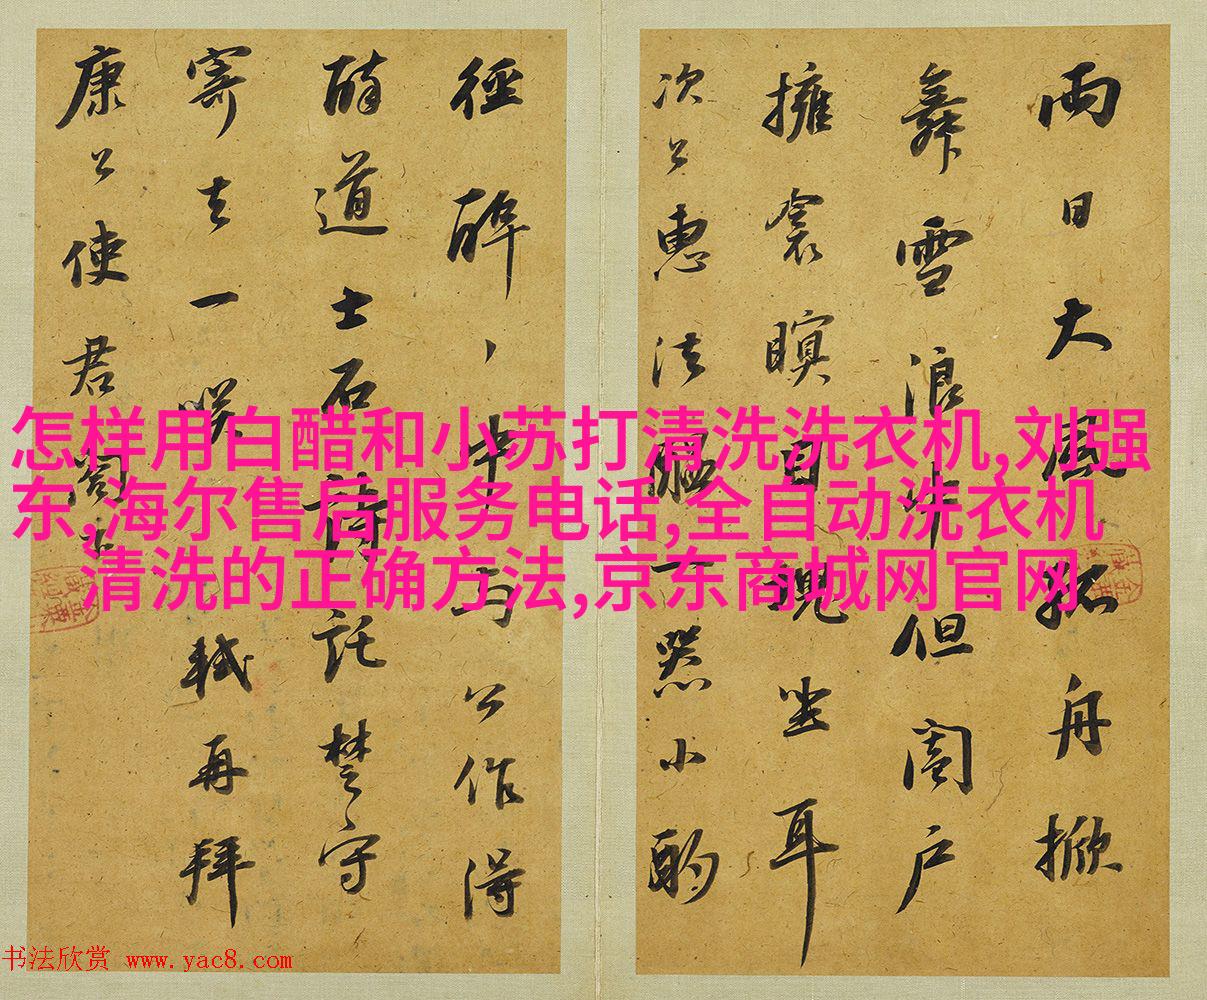 兩日大風孤舟掀
舞雪浪中但闔戶
擁衾瞑目塊坐耳
次公惠法醞一器小酌
徑醉、中与公作得
醉道士石詩託楚守
寄去一咲軾再拜
康公使君閣下
怎样用白醋和小苏打清洗洗衣机,刘强
东,海尔售后服务电话,全自动洗衣机
清洗的正确方法,京东商城网官网
书法欣赏 www.yac8.com